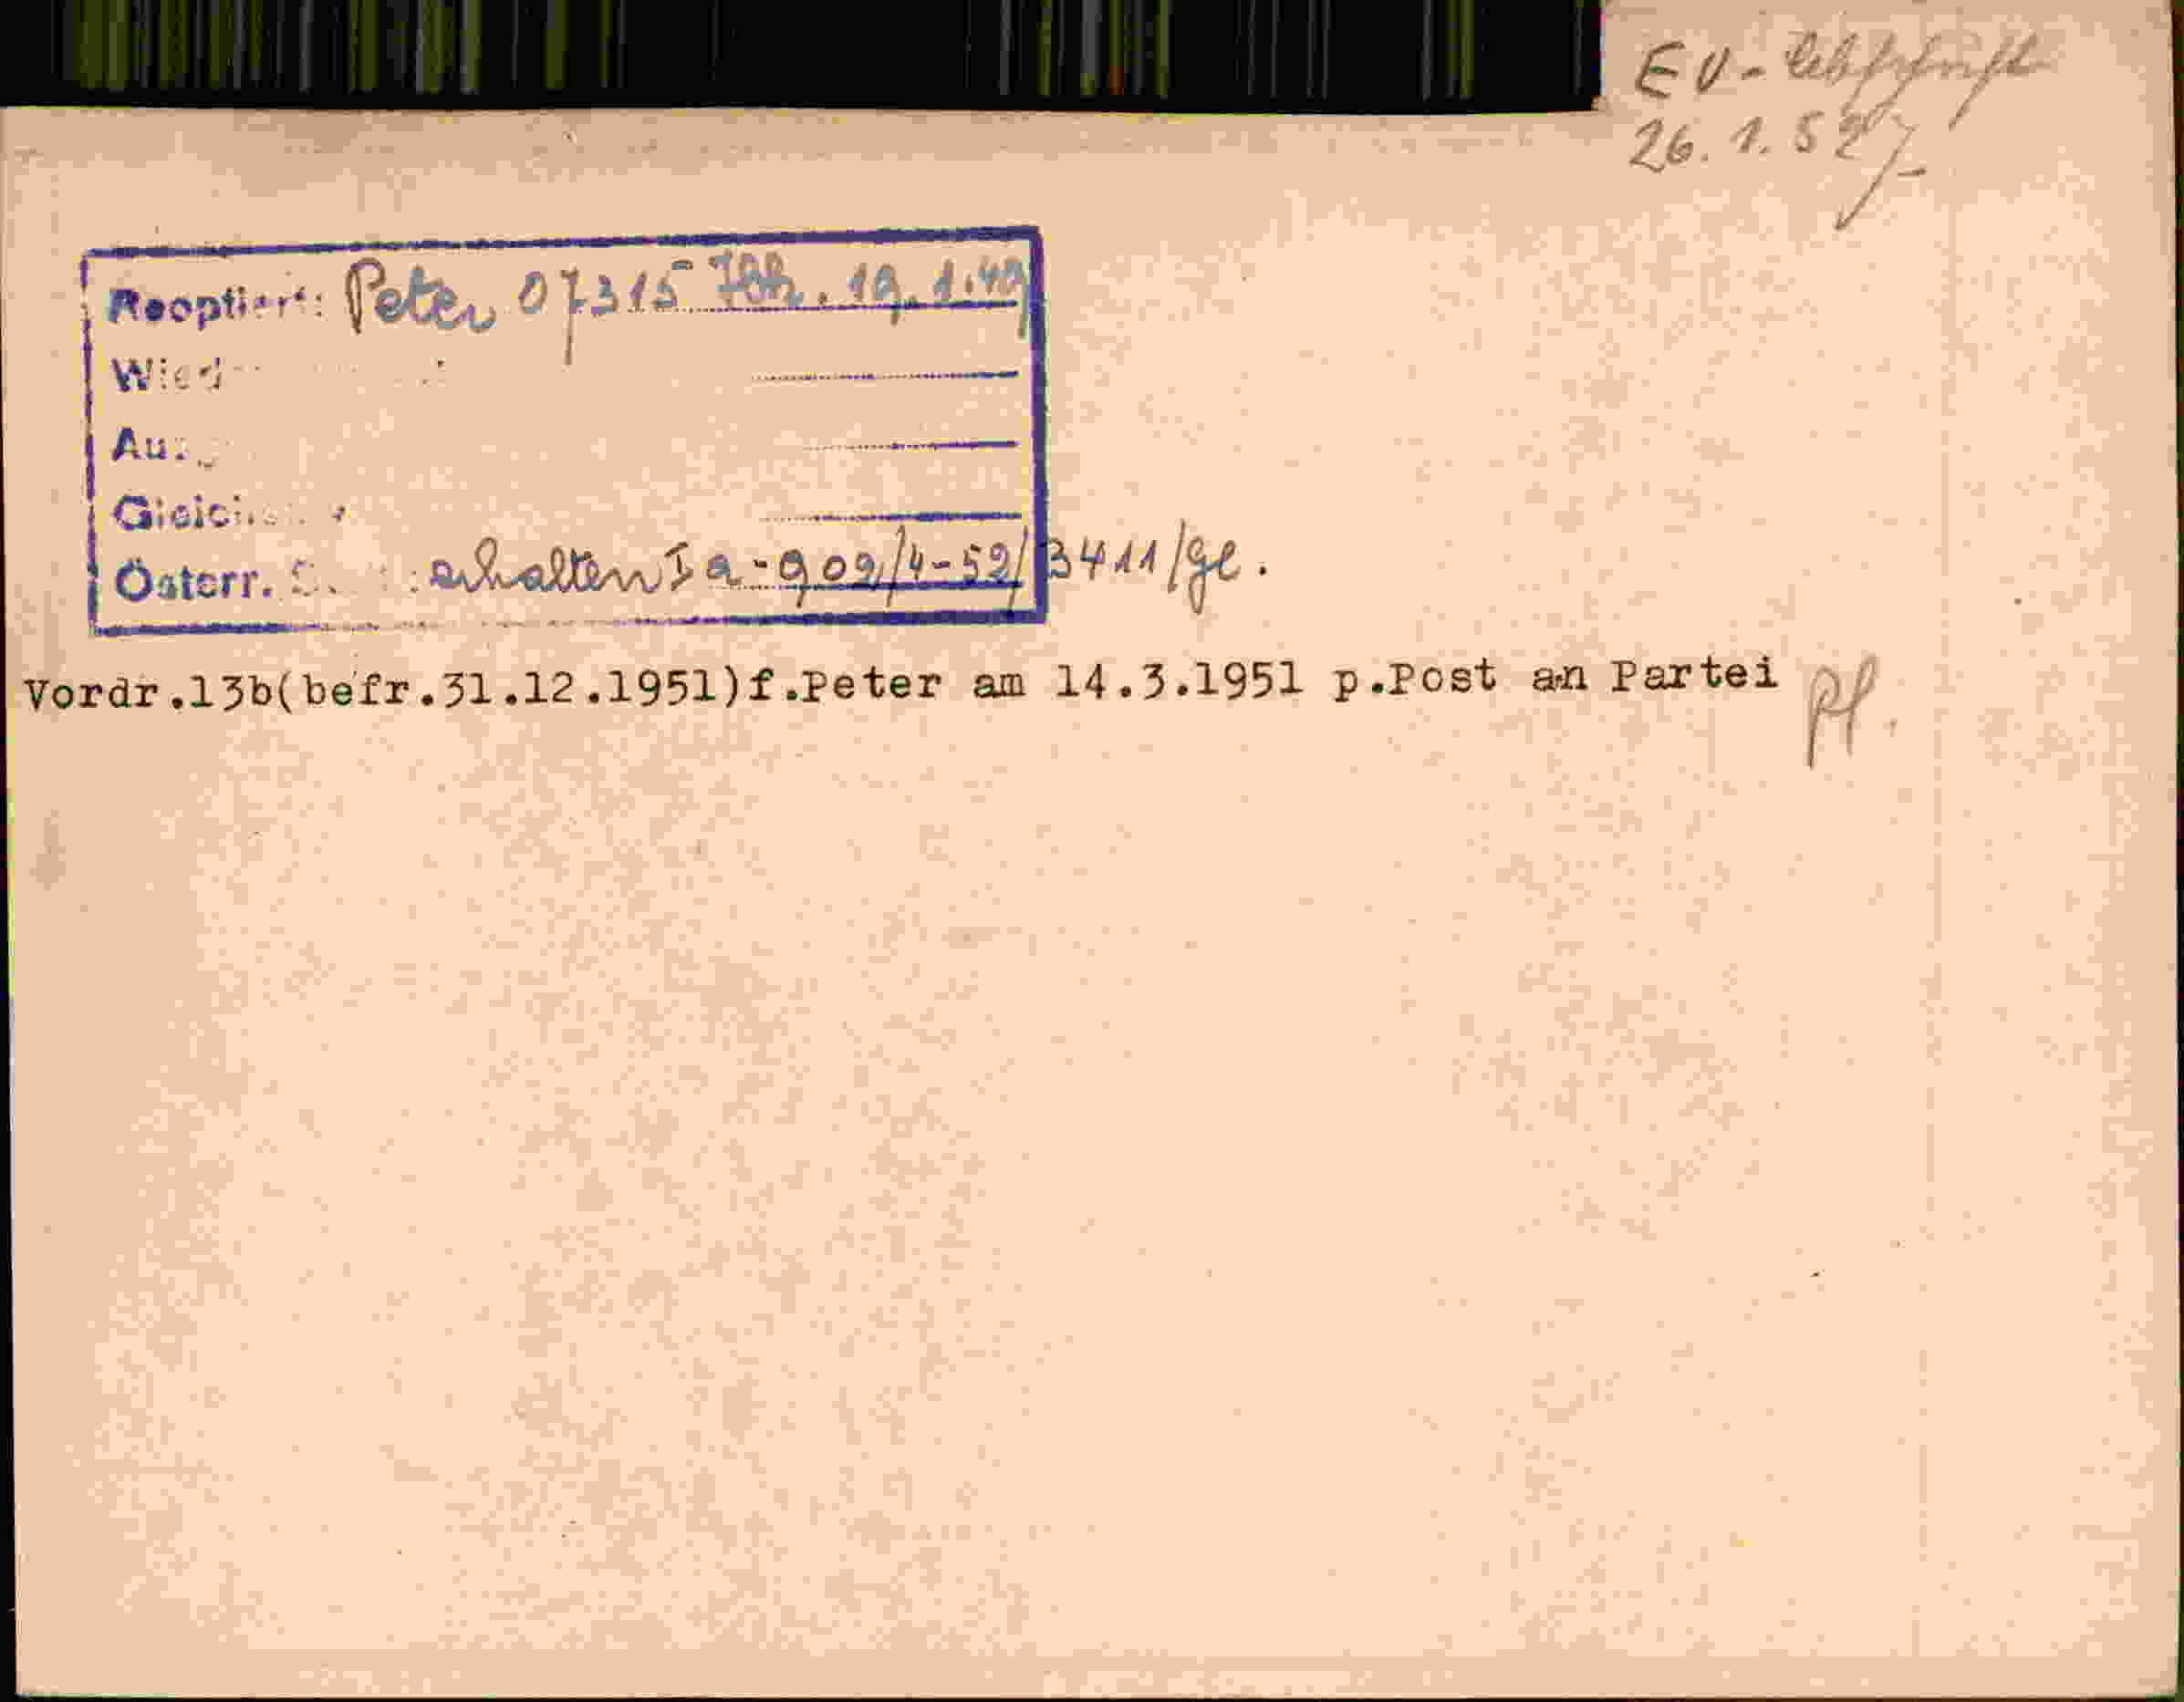 EV-Abschrift
26.1.52
Reoptiert: Peter 07315 19.1.49
Österr. erhalten I a-909/4-52/3411/ge.
Vordr.13b(befr.31.12.1951)f.Peter am 14.3.1951 p.Post an Partei pf.